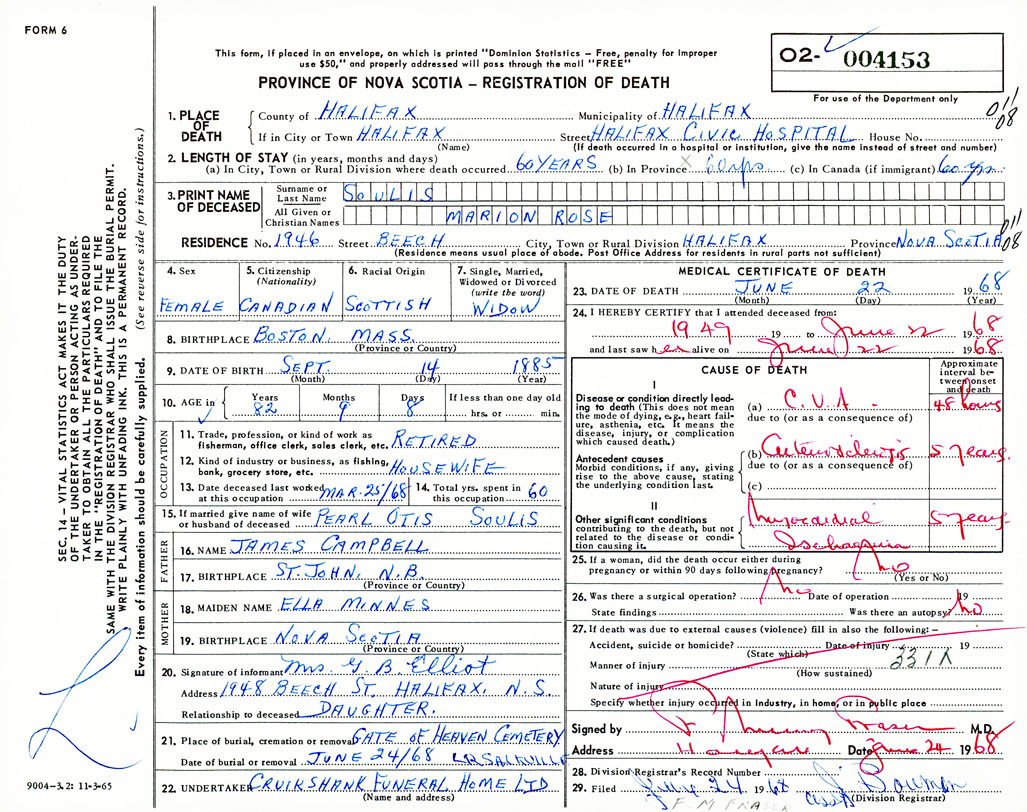 FORM 6
This form, if placed in an envelope, on which is printed "Dominion Statistics – Free, penalty for improper
use $50," and properly addressed will pass through the mail "FREE"
PROVINCE OF NOVA SCOTIA – REGISTRATION OF DEATH
02- 004153
For use of the Department only
011
08
1. PLACE OF DEATH
County of HALIFAX Municipality of HALIFAX
If in City or Town HALIFAX Street HALIFAX CIVIC HOSPITAL House No.
(Name) (If death occurred in a hospital or institution, give the name instead of street and number)
2. LENGTH OF STAY (in years, months and days)
(a) In City, Town or Rural Division where death occurred 60 YEARS (b) In Province X 60 yrs (c) In Canada (if immigrant) 60 yrs
3. PRINT NAME OF DECEASED
Surname or Last Name SOULIS
All Given or Christian Names MARION ROSE
011
08
RESIDENCE No. 1946 Street BEECH City, Town or Rural Division HALIFAX Province NOVA SCOTIA
(Residence means usual place of abode. Post Office Address for residents in rural parts not sufficient)
4. Sex
FEMALE
5. Citizenship (Nationality)
CANADIAN
6. Racial Origin
SCOTTISH
7. Single, Married, Widowed or Divorced (write the word)
WIDOW
8. BIRTHPLACE BOSTON, MASS.
(Province or Country)
9. DATE OF BIRTH SEPT. 14 1885
(Month) (Day) (Year)
10. AGE in Years 82 Months 9 Days 8 If less than one day old
hrs. or min.
OCCUPATION
11. Trade, profession, or kind of work as
fisherman, office clerk, sales clerk, etc. RETIRED
12. Kind of industry or business, as fishing,
bank, grocery store, etc. HOUSEWIFE
13. Date deceased last worked at this occupation MAR. 25/68 14. Total yrs. spent in this occupation 60
15. If married give name of wife
or husband of deceased PEARL OTIS SOULIS
FATHER
16. NAME JAMES CAMPBELL
17. BIRTHPLACE ST. JOHN, N.B.
(Province or Country)
MOTHER
18. MAIDEN NAME ELLA MINNES
19. BIRTHPLACE NOVA SCOTIA
(Province or Country)
20. Signature of informant Mrs. G. B. Elliot
Address 1948 BEECH ST. HALIFAX, N.S.
Relationship to deceased DAUGHTER.
21. Place of burial, cremation or removal GATE OF HEAVEN CEMETERY
Date of burial or removal JUNE 24/68 LR SACKVILLE
22. UNDERTAKER CRUIKSHANK FUNERAL HOME LTD
(Name and address)
MEDICAL CERTIFICATE OF DEATH
23. DATE OF DEATH JUNE 22 1968
(Month) (Day) (Year)
24. I HEREBY CERTIFY that I attended deceased from:
1949 19 to June 22 1968
and last saw her alive on June 22 1968
CAUSE OF DEATH
Approximate interval between onset and death
I
Disease or condition directly leading to death (This does not mean the mode of dying, e.g., heart failure, asthenia, etc. It means the disease, injury, or complication which caused death.)
(a) C.V.A. 48 hours
due to (or as a consequence of)
Antecedent causes
Morbid conditions, if any, giving rise to the above cause, stating the underlying condition last.
(b) Arteriosclerosis 5 years.
due to (or as a consequence of)
(c)
II
Other significant conditions
contributing to the death, but not related to the disease or condition causing it.
Myocardial 5 years.
Ischaemia
25. If a woman, did the death occur either during
pregnancy or within 90 days following pregnancy? no
(Yes or No)
26. Was there a surgical operation? no Date of operation 19
State findings Was there an autopsy? no
27. If death was due to external causes (violence) fill in also the following: –
Accident, suicide or homicide? Date of injury 19
(State which)
Manner of injury 331X
(How sustained)
Nature of injury
Specify whether injury occurred in industry, in home, or in public place
Signed by F Murray Fraser M.D.
Address Halifax Date June 24 1968
28. Division Registrar's Record Number
29. Filed June 24 1968
(Division Registrar)
F. M. FRASER
SEC. 14 – VITAL STATISTICS ACT MAKES IT THE DUTY
OF THE UNDERTAKER OR PERSON ACTING AS UNDER-
TAKER TO OBTAIN ALL THE PARTICULARS REQUIRED
IN THE "REGISTRATION OF DEATH" AND TO FILE THE
SAME WITH THE DIVISION REGISTRAR WHO SHALL ISSUE THE BURIAL PERMIT.
WRITE PLAINLY WITH UNFADING INK. THIS IS A PERMANENT RECORD.
Every item of information should be carefully supplied. (See reverse side for instructions.)
9004-3.2: 11-3-65